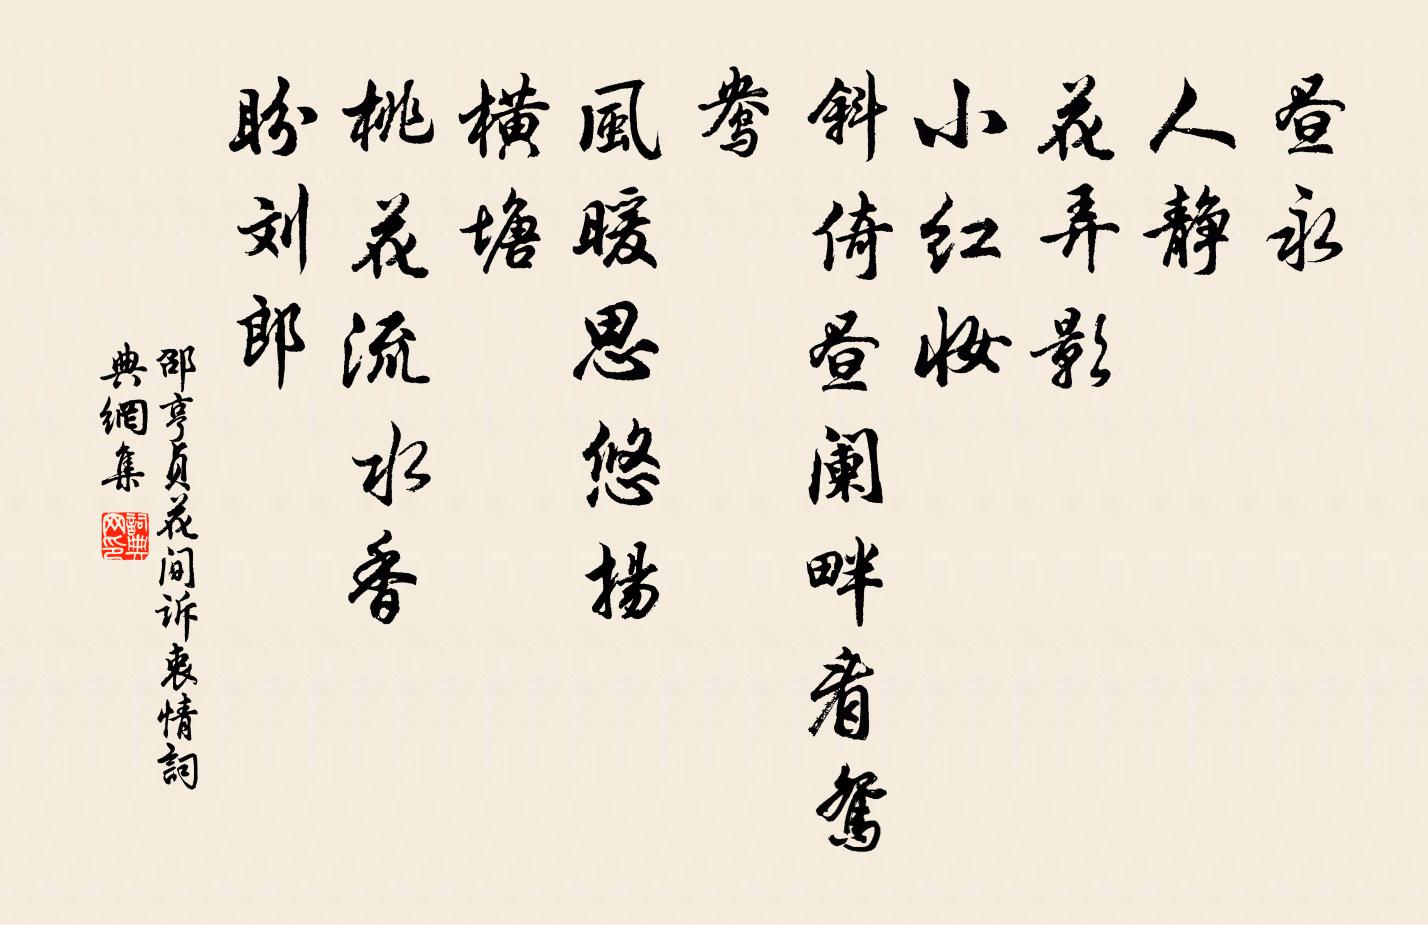 昼永
人静
花弄影
小红妝
斜倚昼阑畔看鴛
鴦
風暖思悠揚
横塘
桃花流水香
盼刘郎
邵亨贞花间诉衷情詞
典網集
詞典
网印